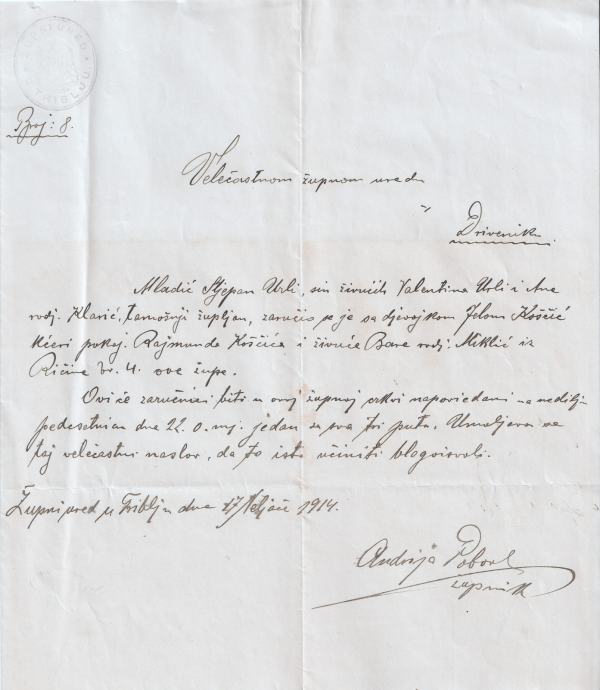 ŽUPNI URED TRIBLJU
Broj: 8.
Velečastnom župnom uredu
u
Driveniku.
Mladić Stjepan Urli, sin živućih Valentina Urli i Ane
rodj. Klarić, tamošnji župljan, zaručio se je sa djevojkom Jelom Košćić
kćeri pokoj. Rajmunda Košćića i živuće Bare rodj. Miklić iz
Ričine br. 4. ove župe.
Ovi će zaručnici biti u ovoj župnoj crkvi napoviedani na nedilju
pedesetnicu dne 22. o. mj. jedan za sva tri puta. Umoljava se
taj velečastni naslov, da to isto učiniti blagoizvoli.
Župni ured u Triblju dne 17 Veljače 1914.
Andrija
župnik